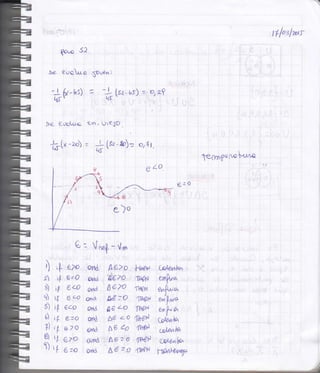 17/03/2015
para 52
se evalua joven:
-1/45 (x-65) = -1/45 (52-65) = 0,29
se evalua en viejo
1/45 (x-20) = 1/45 (52-20) = 0,71
temperatura
e<0
e=0
e>0
ε = Vref - Vm
1) if e>0 and Δe>0 then calentar
2) if e<0 and Δe>0 then enfria
3) if e<0 and Δe>0 then enfria
4) if e<0 and Δe=0 then enfria
5) if e<0 and Δe<0 then enfria
6) if e=0 and Δe<0 then calentar
7) if e>0 and Δe<0 then calentar
8) if e>0 and Δe=0 then calentar
9) if e=0 and Δe=0 then mantenga